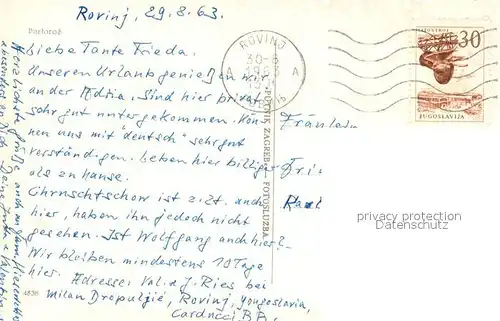 Rovinj, 29.8.63.
Portorož
Liebe Tante Frieda.
Unseren Urlaub genießen wir
an der Adria, sind hier privat
sehr gut untergekommen. Kön-
nen uns mit "deutsch" sehr gut
verständigen. Leben hier billiger
als zu hause.
Chrustschow ist z.Zt. auch
hier, haben ihn jedoch nicht
gesehen. Ist Wolfgang auch hier?
Wir bleiben mindestens 10 Tage
hier. Adresse: Val. u. J. Ries bei
Milan Drepuljić, Rovinj, Yougoslavia,
Carducci
4836
Herzlichste Grüße auch an
ROVINJ
30-8
1963
A A
PUTNIK, ZAGREB - FOTOSLUŽBA
30
JUGOSLAVIJA
Fräulein
privacy protection
Datenschutz